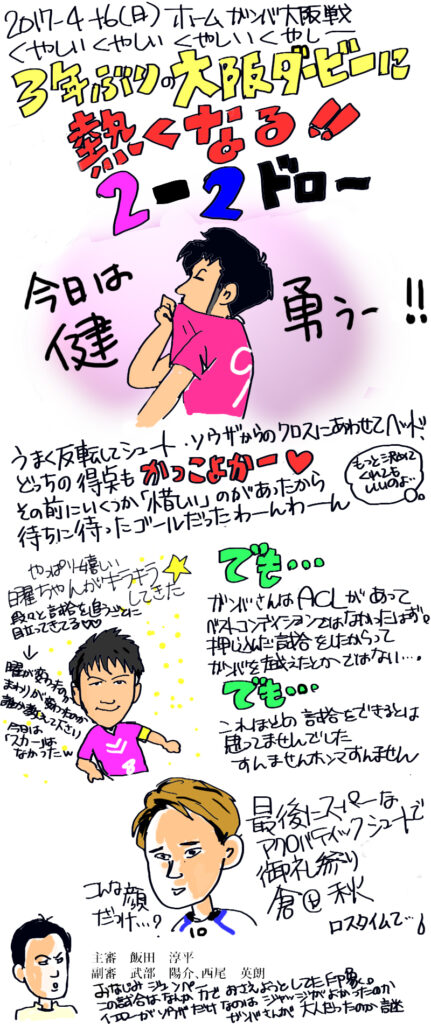 2017-4-16(日) ホーム ガンバ大阪戦
くやしい くやしい くやしい くやしー
3年ぶりの大阪ダービーに
熱くなる!!
2-2ドロー
今日は
健
勇うー!!
9
うまく反転してシュート、ソウザからのクロスにあわせてヘッド、
どっちの得点も かっこよかー♥
その前にいくつか「惜しい」のがあったから
待ちに待ったゴールだったわーんわーん
もっと決めて
くれても
いいのよ…
やっぱり嬉しい
曜ちゃんがキラキラ
してきた
段々と試合を追うごとに
目立ってきてる
↓
曜が変わったのか
まわりが変わったのか
誰か教えて下さい
今日は
「スカ」は
なかったw
8
でも…
ガンバさんはACLがあって
ベストコンディションではなかったはず。
押し込んだ試合をしたからって
ガンバを越えたとかではない…。
でも…
これほどの試合をできるとは
思ってませんでした
すんませんホンマすんません
最後にスーパーな
アクロバティックシュートで
御礼参り
倉@秋
ロスタイムで…!
こんな顔
だっけ…?
10
主審 飯田 淳平
副審 武部 陽介、西尾 英朗
おなじみジュンペー
この試合はなんか力でおさえようとしてた印象。
イエローがソウザだけなのはジャッジがよかったのか
ガンバさんが大人だったのか謎